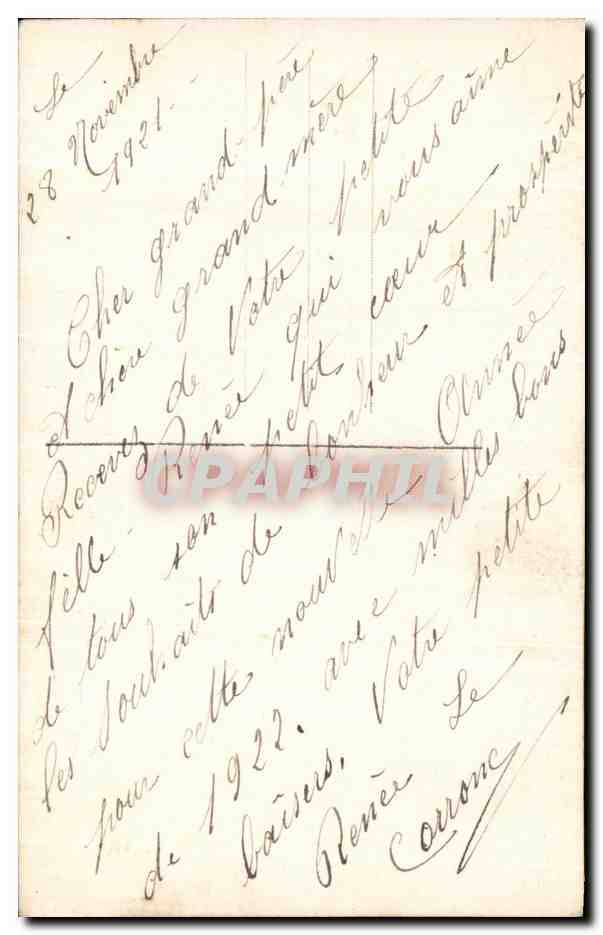 Le
28 Novembre
1921.
Cher grand-père
et chère grand mère
Recevez de Votre petite
fille - Renée qui vous aime
de tous son petit cœur
les souhaits de bonheur et prospérité
pour cette nouvelle Année
de 1922. avec milles bons
baisers. Votre petite
Renée Le
Carronc
CPAPHIL